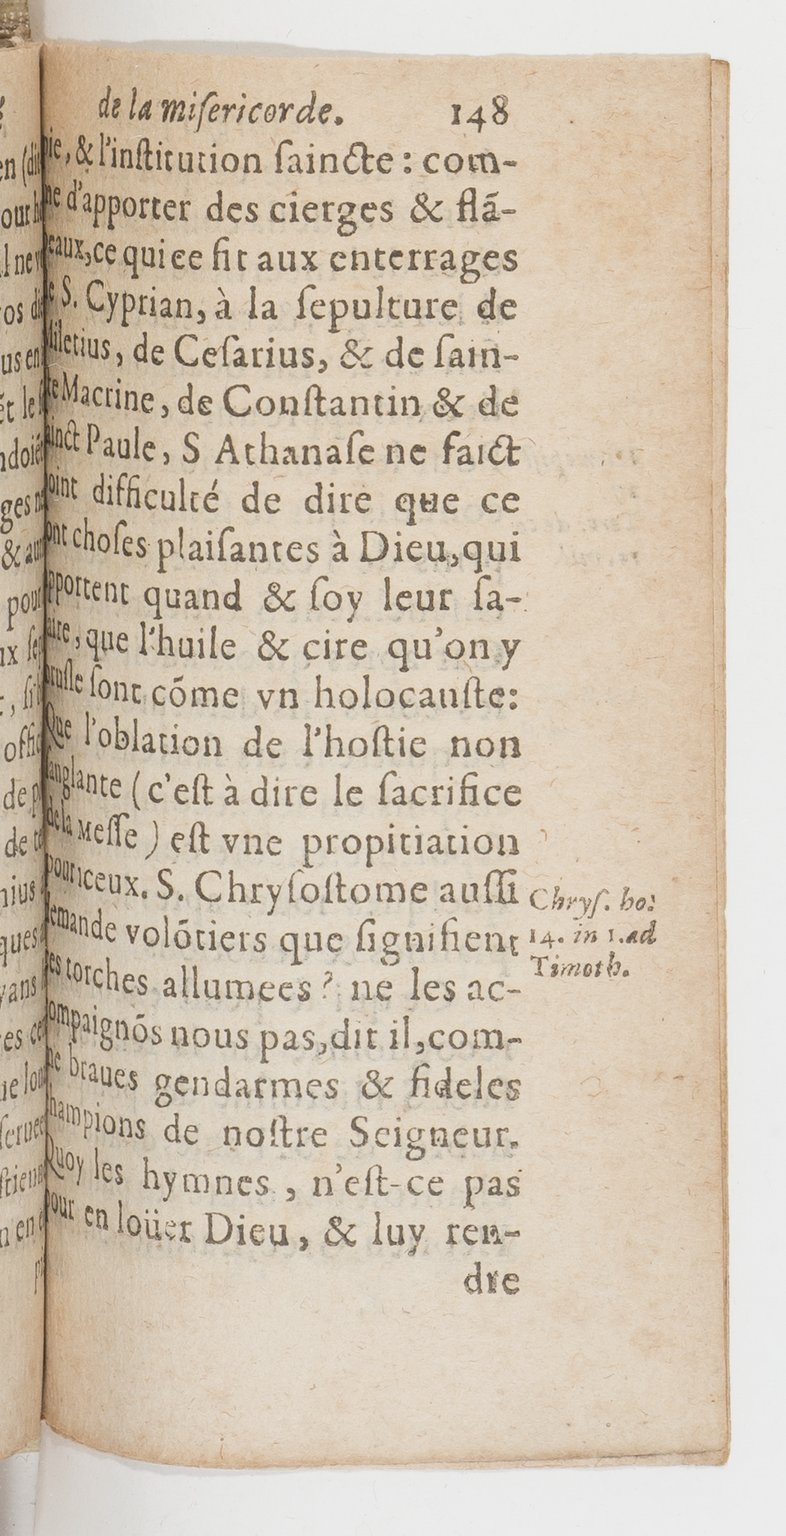 de la miſericorde. 148
& l'inſtitution ſaincte : com-
d'apporter des cierges & flã-
ce qui ce fit aux enterrages
S. Cyprian, à la ſepulture de
de Ceſarius, & de ſain-
Macrine, de Conſtantin & de
Paule, S Athanaſe ne faict
difficulté de dire que ce
choſes plaiſantes à Dieu, qui
quand & ſoy leur ſa-
que l'huile & cire qu'on y
ſont cõme vn holocauſte:
l'oblation de l'hoſtie non
(c'eſt à dire le ſacrifice
Meſſe ) eſt vne propitiation
S. Chryſoſtome auſſi
volõtiers que ſignifient
torches allumees ? ne les ac-
nous pas, dit il, com-
braues gendarmes & fideles
de noſtre Seigneur.
les hymnes, n'eſt-ce pas
en loüer Dieu, & luy ren-
dre
Chryſ. ho:
14. in 1. ad
Timoth.